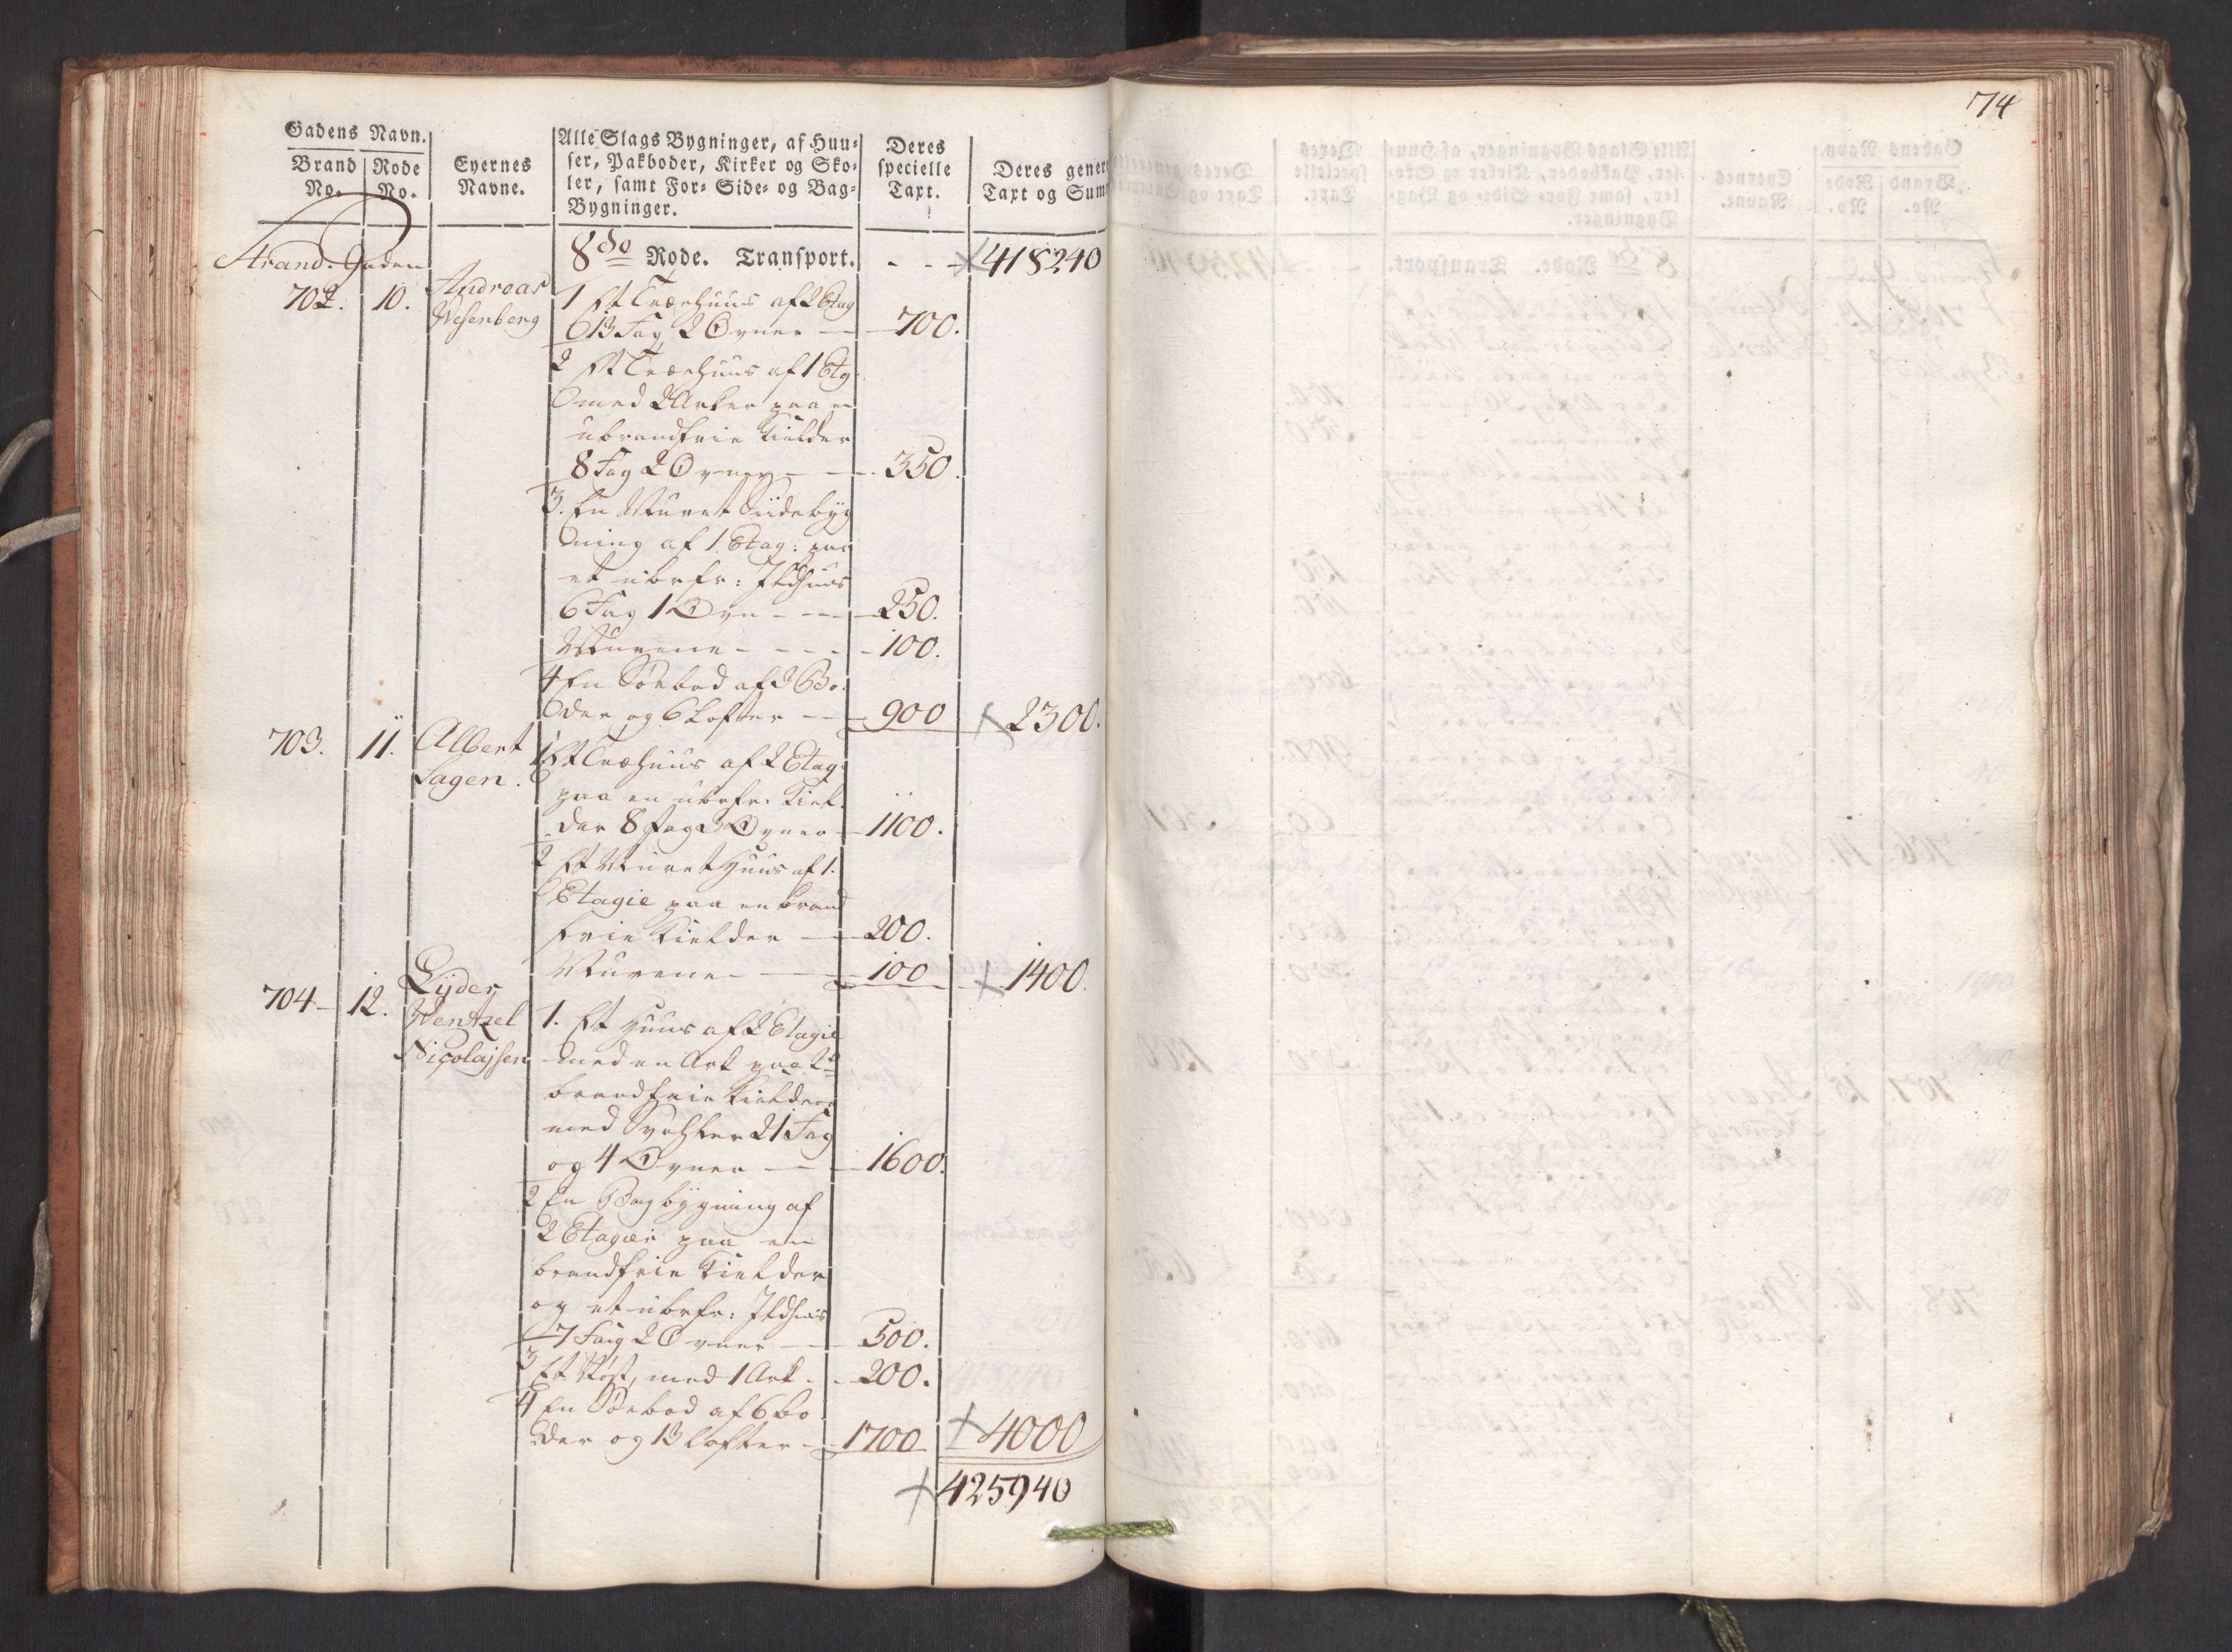 74
Gadens Navn.
Brand No.
Rode No.
Eyernes Navne.
Alle Slags Bygninger, af Huu-
ser, Pakboder, Kirker og Sko-
ler, samt For- Side- og Bag-
Bygninger.
Deres specielle Taxt.
Deres gener
Taxt og Sum
Strand-Gaden
8de Rode. Transport. - - 418240
702. 10. Andreas Wesenberg
1 Et Træehuus af 2 Etag
13 Fag 2 Ovner — 700.
2 Et Træehuus af 1 Etg
med 2 Arker paa en
ubrandfrie Kielder
8 Fag 2 Ovner — 350.
3. En Muret Siidebyg
ning af 1. Etag: paa
et ubrfr: Ildhuus
6 Fag 1 Ovn - - - 250.
Murene - - - - 100.
4 En Söebod af 3 Bo
der og 6 Lofter — 900 2300.
703. 11. Albert Sagen.
1 Et Træhuus af 2 Etag:
paa en ubrfr: Kiel
der 8 Fag 3 Ovner - 1100.
2 Et Muret Huus af 1.
Etagie paa en brand
frie Kielder — 200.
Murene - — 100 1400.
704 - 12. Lyder
Wentzel
Nicolajsen
1. Et Huus af 2 Etagie
med en Ark paa 2de
brandfrie Kieldere
med 21 Fag
og 4 Ovner — 1600.
2 En Bagbygning af
2 Etagier paa en
brandfrie Kielder
og et ubrfr: Ildhuus
7 Faig 2 Ovner — 500.
3 Et med 1 Ark - - 200.
4 En Söebod af 6 bo
der og 13 lofter - 1700 4000
425940